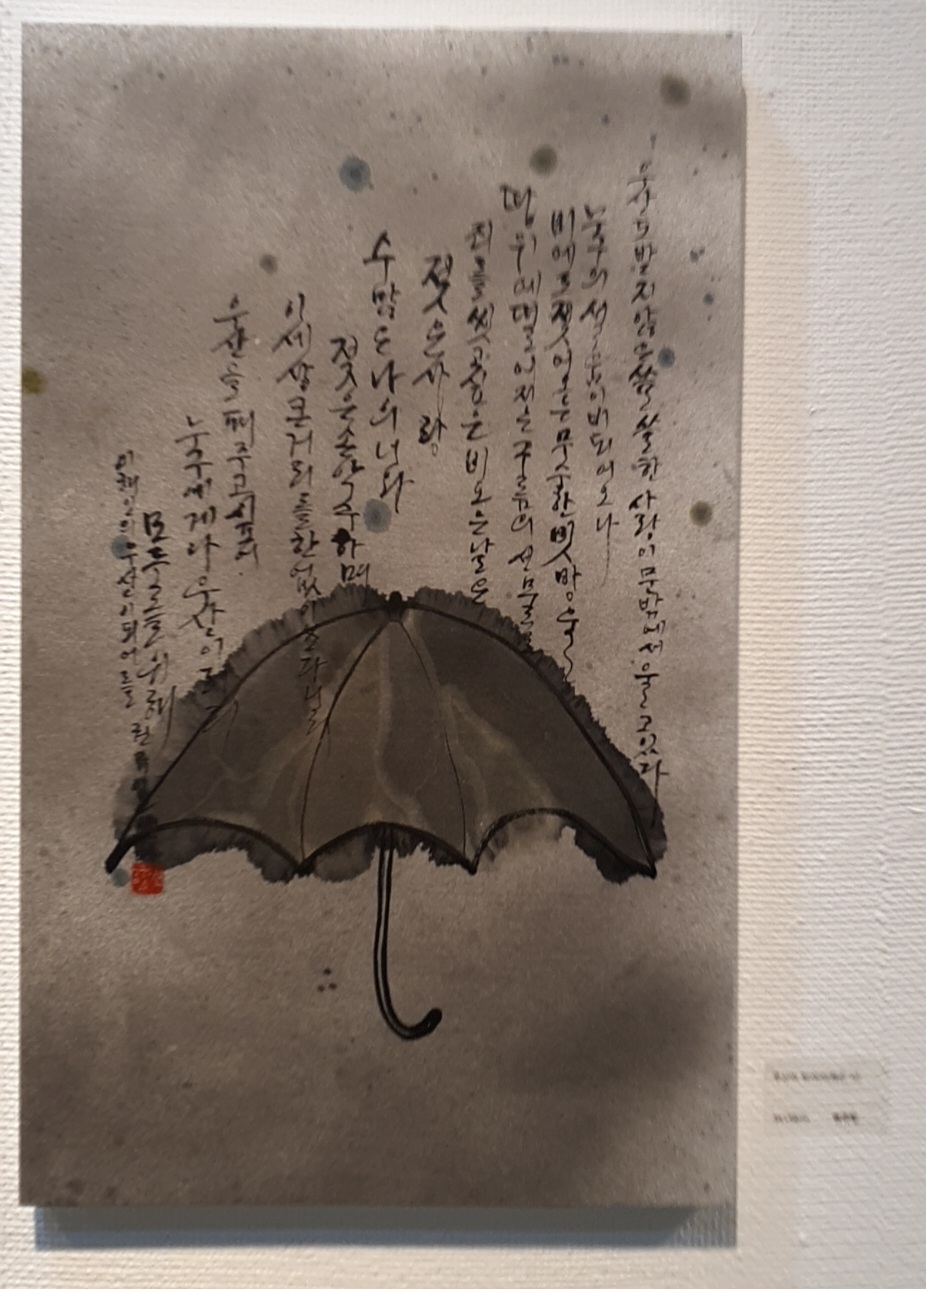 우산도 받지 않은 쓸쓸한 사랑이 문밖에서 울고 있다
누구의 설움이 비 되어 오나
비에 젖어
무수한 빗방울
땅 위에 떨어지는 구름의 선물
죄를 씻고 싶은 비 오는 날은
젖은 사랑
수많은 나의 너와
젖은 손 악수하며
이 세상 큰 거리를 한없이
우산을 펴 주고 싶어
누구에게나 우산이
모두를 위해
이해인의 우산이 되어를